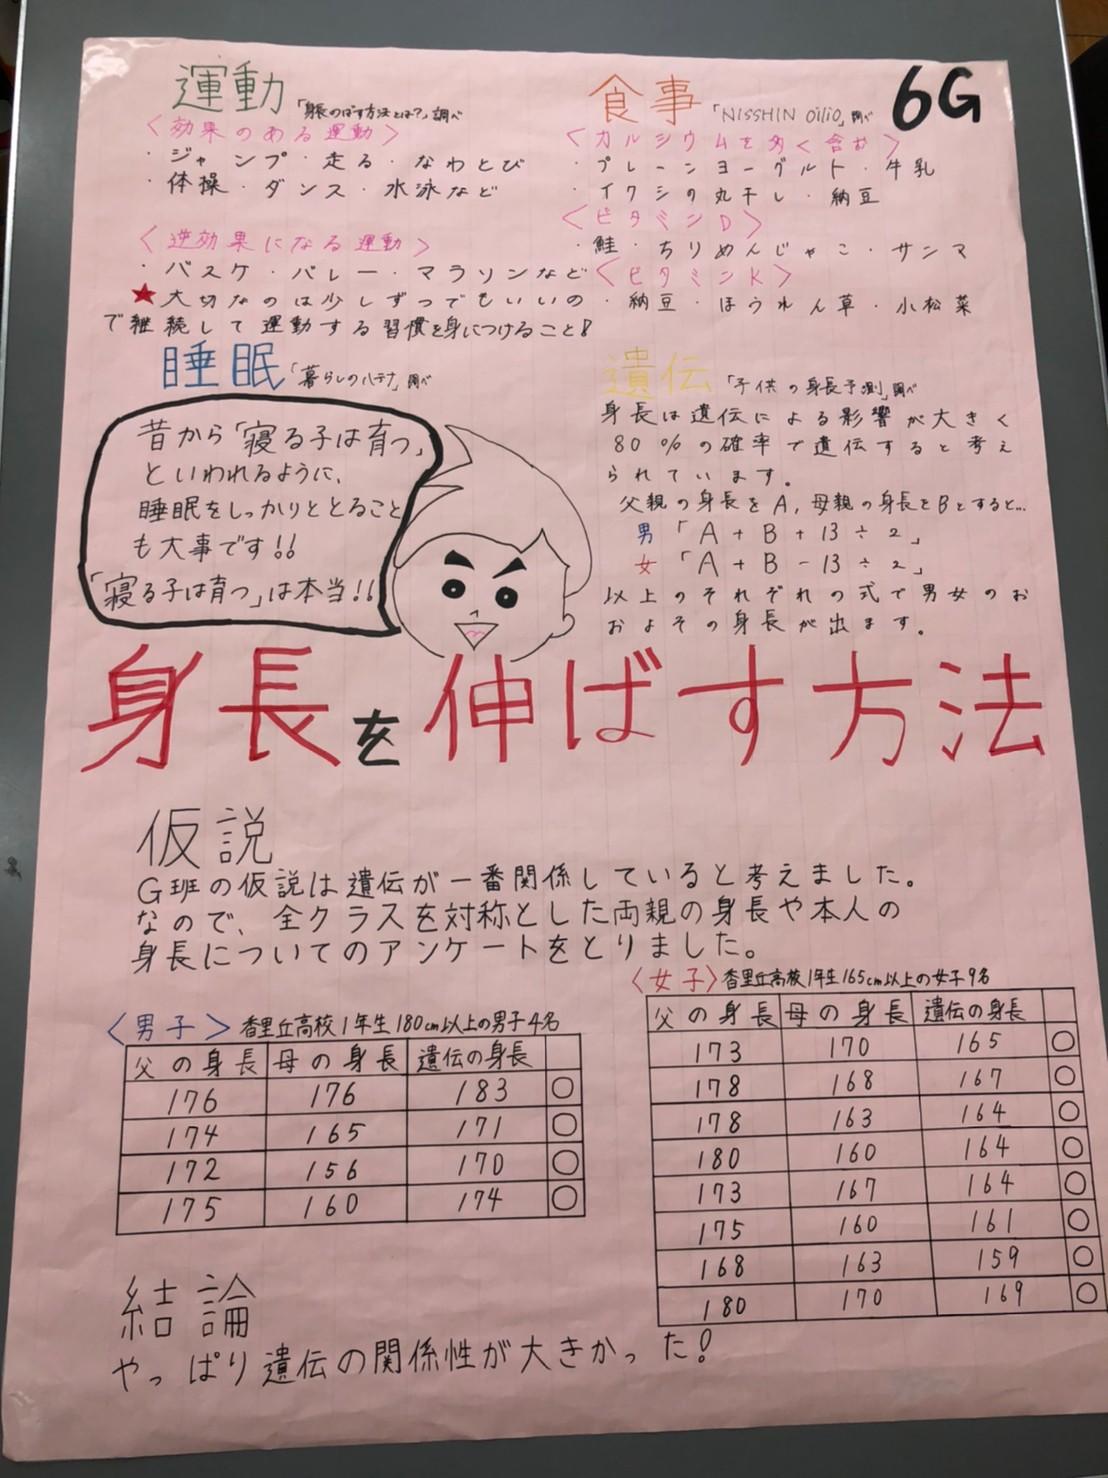 運動「身長のばす方法とは?」調べ
〈効果のある運動〉
・ジャンプ・走る・なわとび
・体操・ダンス・水泳など
〈逆効果になる運動〉
・バスケ・バレー・マラソンなど
★大切なのは少しずつでもいいの
で継続して運動する習慣を身につけること!
食事「NISSHIN OilliO」調べ
6G
〈カルシウムを多く含む〉
・プレーンヨーグルト・牛乳
・イワシの丸干し・納豆
〈ビタミンD〉
・鮭・ちりめんじゃこ・サンマ
〈ビタミンK〉
・納豆・ほうれん草・小松菜
睡眠「暮らしのハテナ」調べ
昔から「寝る子は育つ」
といわれるように、
睡眠をしっかりととること
も大事です!!
「寝る子は育つ」は本当!!
遺伝「子供の身長予測」調べ
身長は遺伝による影響が大きく
80%の確率で遺伝すると考え
られています。
父親の身長をA,母親の身長をBとすると…
男「A+B+13÷2」
女「A+B-13÷2」
以上のそれぞれの式で男女のお
およその身長が出ます。
身長を伸ばす方法
仮説
G班の仮説は遺伝が一番関係していると考えました。
なので、全クラスを対称とした両親の身長や本人の
身長についてのアンケートをとりました。
〈男子〉香里丘高校1年生180cm以上の男子4名
父の身長 母の身長 遺伝の身長
176 176 183 ○
174 165 171 ○
172 156 170 ○
175 160 174 ○
〈女子〉香里丘高校1年生165cm以上の女子9名
父の身長 母の身長 遺伝の身長
173 170 165 ○
178 168 167 ○
178 163 164 ○
180 160 164 ○
173 167 164 ○
175 160 161 ○
168 163 159 ○
180 170 169 ○
結論
やっぱり遺伝の関係性が大きかった!